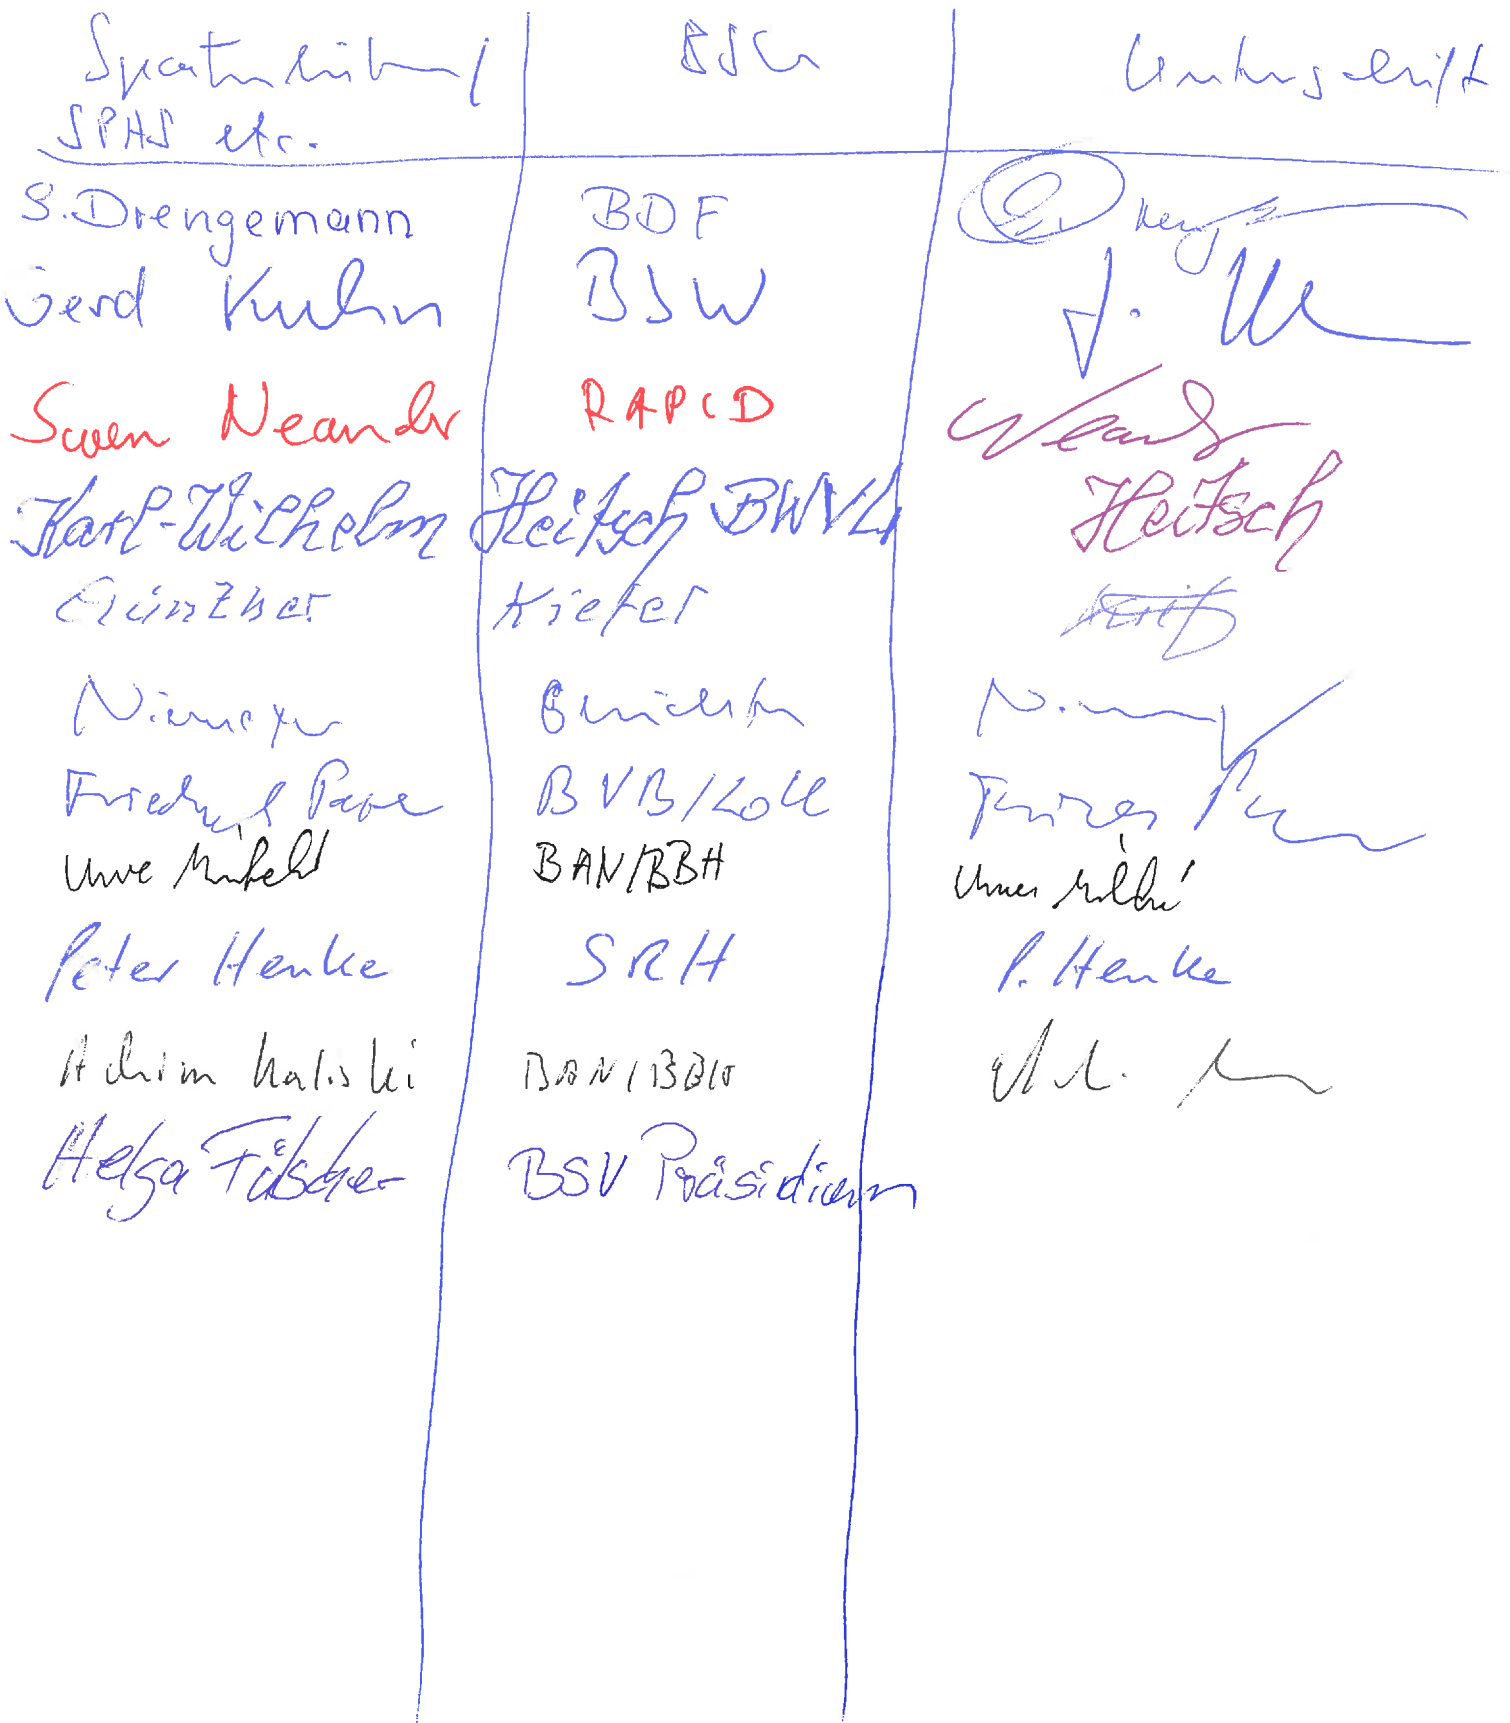 Spartenleitung BSG Unterschrift
SPAS etc.
S. Drengemann BDF
Gerd Kuhn BSW
Swen Neander RAPID Neander
Karl-Wilhelm Heitsch BWVL Heitsch
Günther Kiefer
Niemeyer
Friedrich Pape BVB/Zoll
Uwe BAN/BBH Uwe
Peter Henke SRH P. Henke
Achim Kaliski BAN/BBH
Helga Fülscher BSV Präsidium